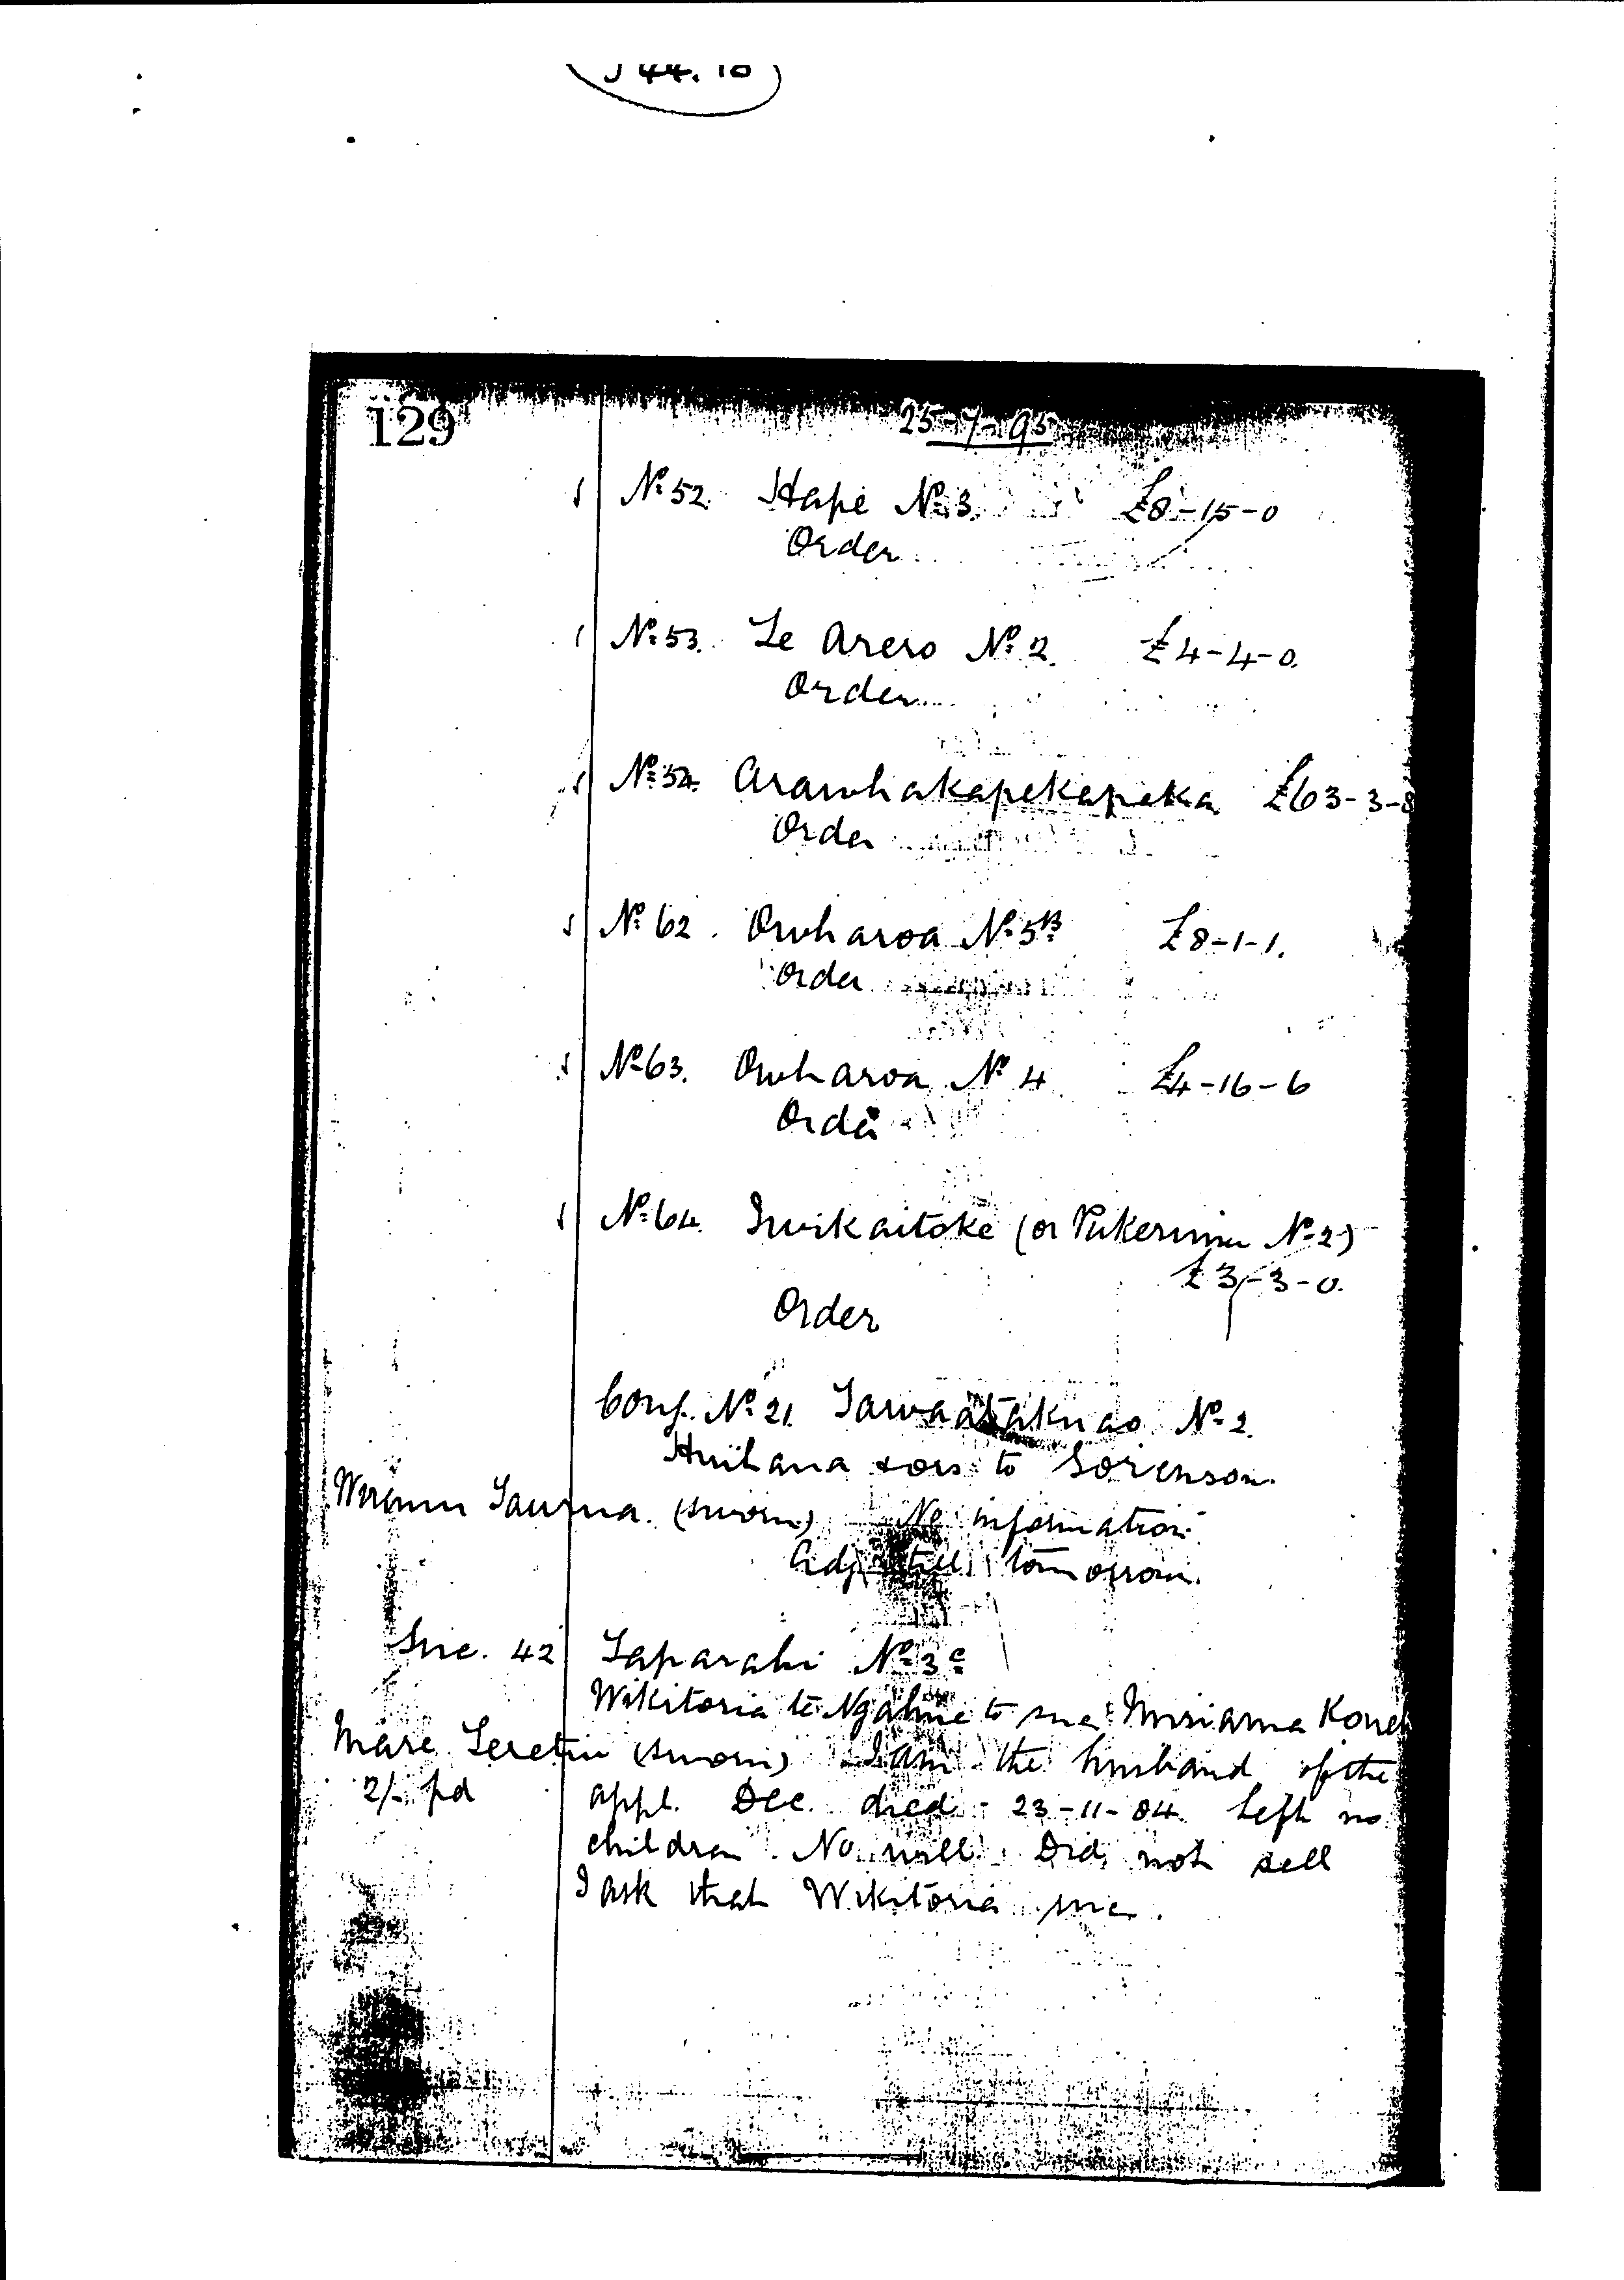 J 44. 10
129
25-7-95
№ 52. Hape № 3. £8-15-0
Order
№ 53. Te Arero № 2. £4-4-0.
Order
№ 54. Arawhakapekapeka £63-3-8
Order
№ 62. Owharoa № 5B £8-1-1.
Order
№ 63. Owharoa № 4 £4-16-6
Order
№ 64. Iwikaitoke (or Pukerimu № 2)
£3-3-0.
Order
Conf. № 21. № 2.
Huihana & ors to Sorenson.
(sworn) No information
Adj. till tomorrow.
Suc. 42 Taparahi № 3c
Wikitoria te Ngahue to suc. Miriama
Mare Teretiu (sworn) I am the husband of the
2/- pd appl. Dec. died 23-11-84. Left no
children. No will. Did not sell
I ask that Wikitoria suc.